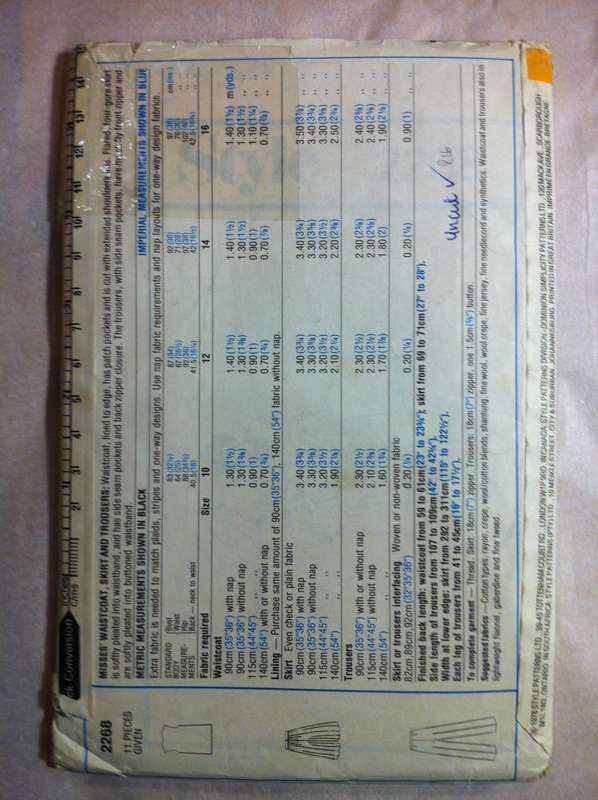 2268
11 PIECES
GIVEN
MISSES' WAISTCOAT, SKIRT AND TROUSERS: Waistcoat, lined to edge, has patch pockets and is cut with extended shoulder line. Flared, four-gore skirt
is softly pleated into waistband, and has side seam pockets and back zipper closure. The trousers, with side seam pockets, have mock fly front zipper and
are softly pleated into buttoned waistband.
METRIC MEASUREMENTS SHOWN IN BLACK IMPERIAL MEASUREMENTS SHOWN IN BLUE
Extra fabric is needed to match plaids, stripes and one-way designs. Use nap fabric requirements and nap layouts for one-way design fabrics.
STANDARD Bust 83 (32½) 87 (34) 92 (36) 97 (38) cm(ins.)
BODY Waist 64 (25) 67 (26½) 71 (28) 76 (30) ,, ,,
MEASURE- Hip 88 (34½) 92 (36) 97 (38) 102 (40) ,, ,,
MENTS Back — neck to waist 40.5 (16) 41.5 (16¼) 42 (16½) 42.5 (16¾) ,, ,,
Fabric required Size 10 12 14 16
Waistcoat
90cm(35"36") with nap 1.30(1½) 1.40(1½) 1.40(1½) 1.40(1½) m(yds.)
90cm(35"36") without nap 1.30(1⅜) 1.30(1⅜) 1.30(1½) 1.30(1½) ,, ,,
115cm(44"45") ,, ,, 0.90(1) 0.90(1) 0.90(1) 1.10(1¼) ,, ,,
140cm(54") with or without nap 0.70(¾) 0.70(¾) 0.70(⅞) 0.70(⅞) ,, ,,
Lining — Purchase same amount of 90cm(35"36"), 140cm(54") fabric without nap.
Skirt Even check or plain fabric
90cm(35"36") with nap 3.40(3¾) 3.40(3¾) 3.40(3¾) 3.50(3⅞) ,, ,,
90cm(35"36") without nap 3.30(3⅝) 3.30(3⅝) 3.30(3⅝) 3.40(3¾) ,, ,,
115cm(44"45") ,, ,, 3.20(3½) 3.20(3½) 3.20(3½) 3.30(3⅝) ,, ,,
140cm(54") ,, ,, 1.90(2⅛) 2.10(2¼) 2.20(2⅜) 2.50(2¾) ,, ,,
Trousers
90cm(35"36") with or without nap 2.30(2½) 2.30(2½) 2.30(2⅝) 2.40(2⅝) ,, ,,
90cm(35"36") without nap 2.10(2⅜) 2.30(2½) 2.30(2⅝) 2.40(2⅝) ,, ,,
115cm(44"45") ,, ,, 1.60(1¾) 1.70(1⅞) 1.80(2) 1.90(2⅛) ,, ,,
140cm(54")
Skirt or trousers interfacing Woven or non-woven fabric
82cm,89cm,92cm(32"35"36") 0.20(¼) 0.20(¼) 0.20(¼) 0.90(1) ,, ,,
Finished back length: waistcoat from 59 to 61cm(23" to 23¾"); skirt from 69 to 71cm(27" to 28").
Side length of trousers from 107 to 109cm(42" to 42¾").
Width at lower edge: skirt from 292 to 311cm(115" to 122½").
Each leg of trousers from 41 to 45cm(16" to 17½").
uncut ✓ R16
To complete garment — Thread. Skirt: 18cm(7") zipper. Trousers: 18cm(7") zipper, one 1.5cm(⅝") button.
Suggested fabrics — Cotton types, rayon, crepe, wool/cotton blends, shantung, fine wool, wool crepe, fine jersey, fine needlecord and synthetics. Waistcoat and trousers also in
lightweight flannel, gaberdine and fine tweed.
© 1978 STYLE PATTERNS LTD., 39-45 TOTTENHAM COURT RD., LONDON W1P 9RD. IN CANADA: STYLE PATTERNS DIVISION - DOMINION SIMPLICITY PATTERNS LTD., 120 MACK AVE., SCARBOROUGH
M1L 1M3, ONTARIO. IN SOUTH AFRICA: STYLE PATTERNS (PTY) LTD., 10 MEIKLE STREET, CITY & SUBURBAN, JOHANNESBURG. PRINTED IN GREAT BRITAIN. IMPRIMÉ EN GRANDE-BRETAGNE
ck Conversion
inches
c/ms